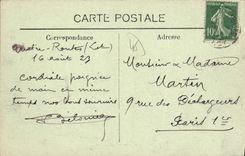 CARTE POSTALE
Correspondance
Adresse
16 août 23
Cordiale poignée
de main en même
temps nos bons souvenirs
Monsieur & Madame
Martin
9 rue des Déchargeurs
Paris 1er
10